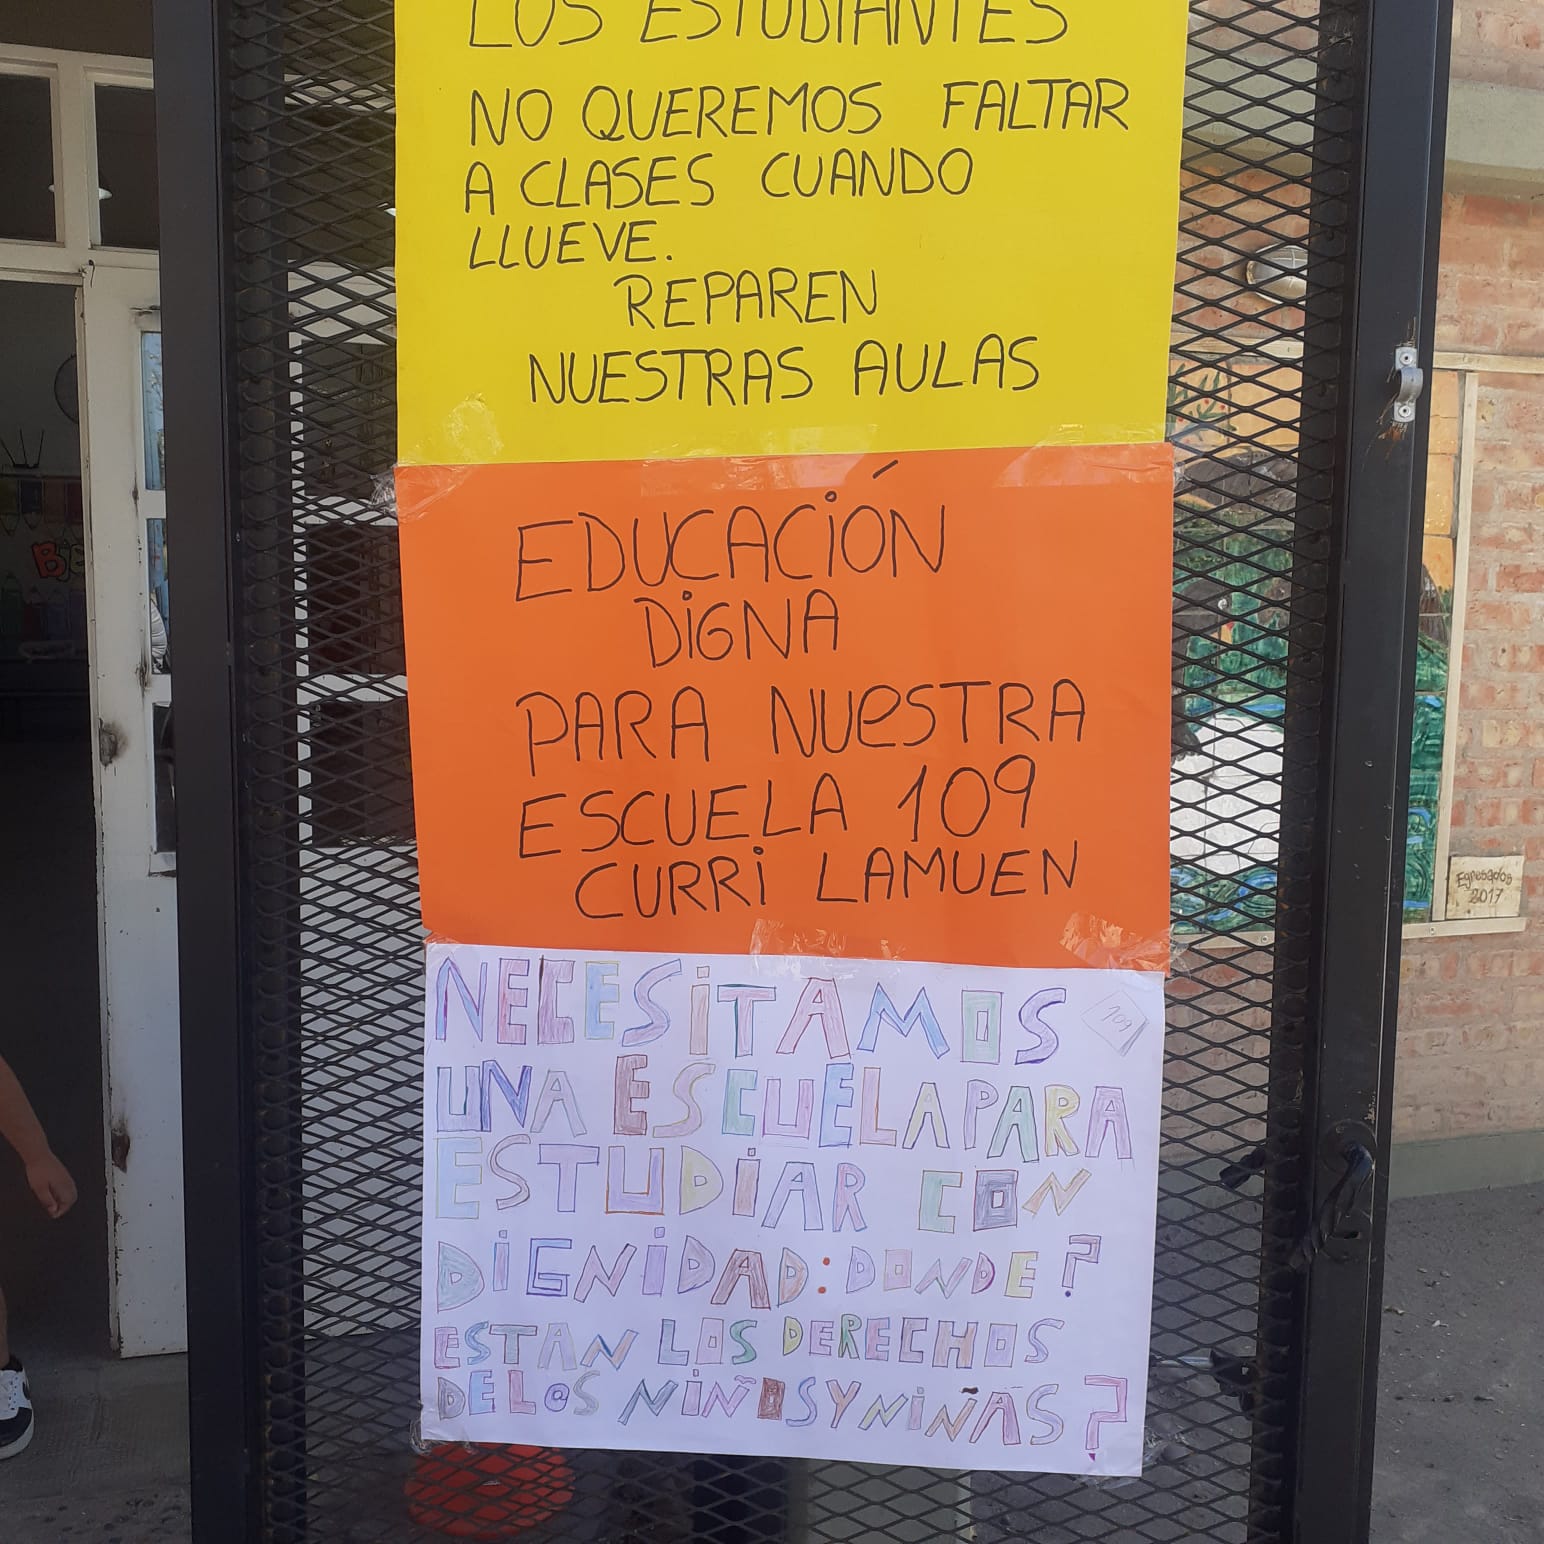 LOS ESTUDIANTES
NO QUEREMOS FALTAR
A CLASES CUANDO
LLUEVE.
REPAREN
NUESTRAS AULAS
EDUCACIÓN
DIGNA
PARA NUESTRA
ESCUELA 109
CURRI LAMUEN
NECESITAMOS
109
UNA ESCUELA PARA
ESTUDIAR CON
DIGNIDAD: DONDE?
ESTAN LOS DERECHOS
DE L@S NIÑOS Y NIÑAS?
Egresados
2017